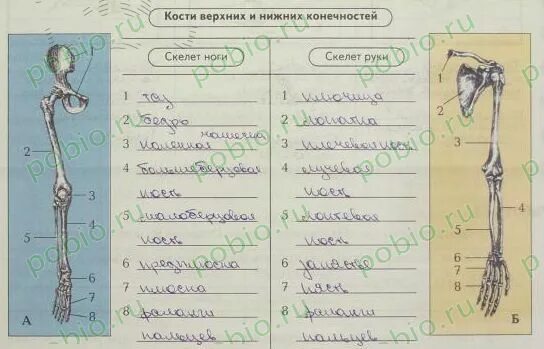 Кости верхних и нижних конечностей
Скелет ноги
1 таз
2 бедро
3 коленная чашечка
4 большеберцовая
кость
5 малоберцовая
кость
6 предплюсна
7 плюсна
8 фаланги
пальцев
Скелет руки
1 ключица
2 лопатка
3 плечевая кость
4 лучевая
кость
5 локтевая
кость
6 запястье
7 пясть
8 фаланги
пальцев
1
2
3
4
5
6
7
8
А
1
2
3
4
5
6
7
8
Б
pobio.ru